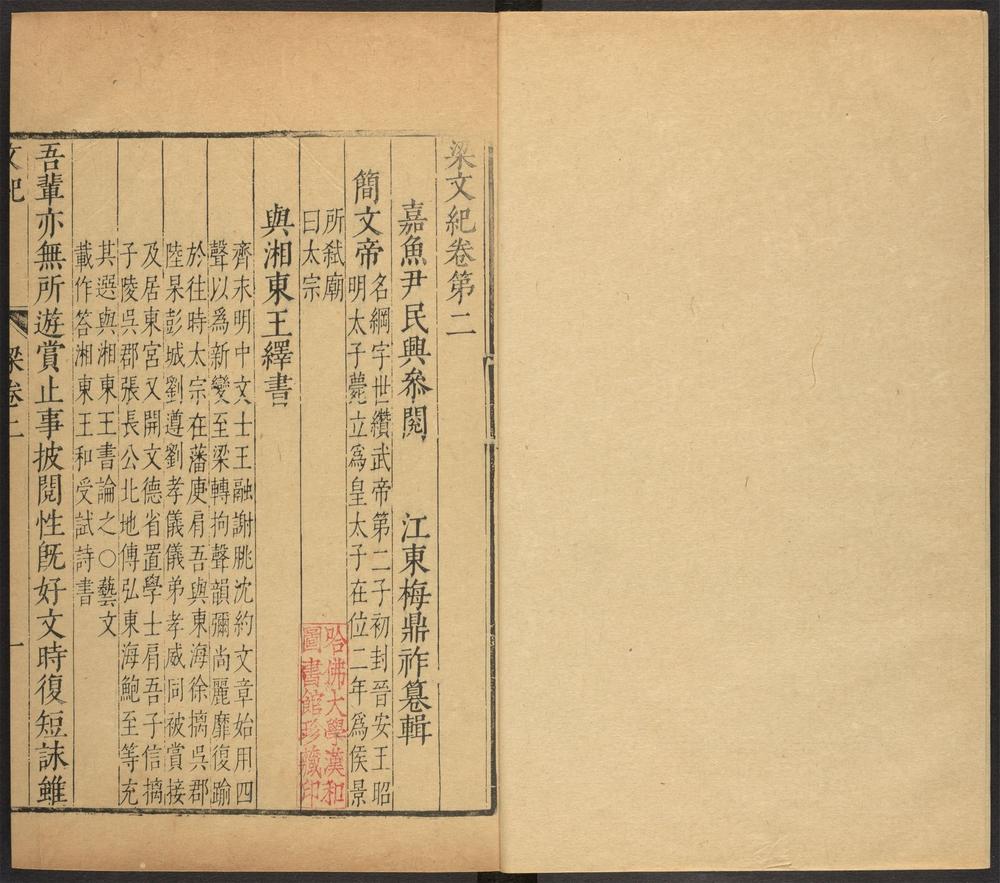 梁文紀卷第二
嘉魚尹民興叅閱　江東梅鼎祚纂輯
簡文帝
名綱字世纘武帝第二子初封晉安王昭
明太子薨立爲皇太子在位二年爲侯景
所弑廟
曰太宗
與湘東王繹書
齊末明中文士王融謝脁沈約文章始用四
聲以爲新變至梁轉拘聲韻彌尚麗靡復踰
於往時太宗在藩庾肩吾與東海徐摛吳郡
陸杲彭城劉遵劉孝儀儀弟孝威同被賞接
及居東宮又開文德省置學士肩吾子信摛
子陵吳郡張長公北地傅弘東海鮑至等充
其選與湘東王書論之○藝文
載作答湘東王和受試詩書
吾輩亦無所遊賞止事披閱性旣好文時復短詠雖
文紀
梁卷二
一
哈佛大學漢和
圖書館珍藏印